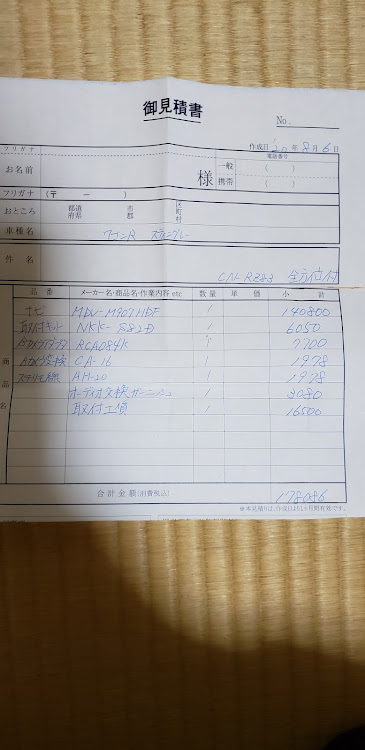 御見積書
No.
作成日 20 年 8 月 6 日
フリガナ 電話番号
お名前 様 一般 ( )
携帯 ( )
フリガナ (〒 － )
おところ 都道府県 市郡 区町村
車種名 ワゴンR スティングレー
件名
CN-RZ88 全方位付
品番 メーカー名・商品名・作業内容 etc 数量 単価 小計
ナビ MDV-M907HDF 1 140800
取付キット NKK- 1 6050
RCA084K 1 7700
変換 CA-16 1 1978
AH-20 1 1978
オーディオ交換ガーニッシュ 1 3080
取付工賃 1 16500
商品名
合計金額(消費税込) 178086
※本見積りは、作成日より1ヶ月間有効です。